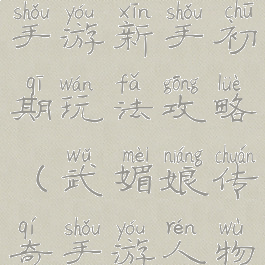 shǒu yóu xīn shǒu chū
手游新手初
qī wán fǎ gōng lüè
期玩法攻略
wǔ mèi niáng chuán
（武媚娘传
qí shǒu yóu rén wù
奇手游人物